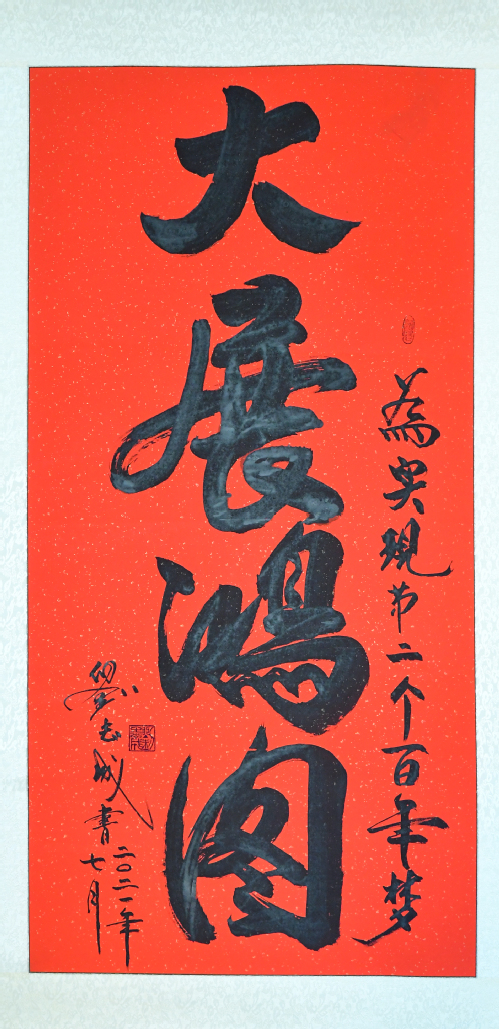 為实現第二个百年梦
大展鸿图
劉志成書
二〇二一年
七月